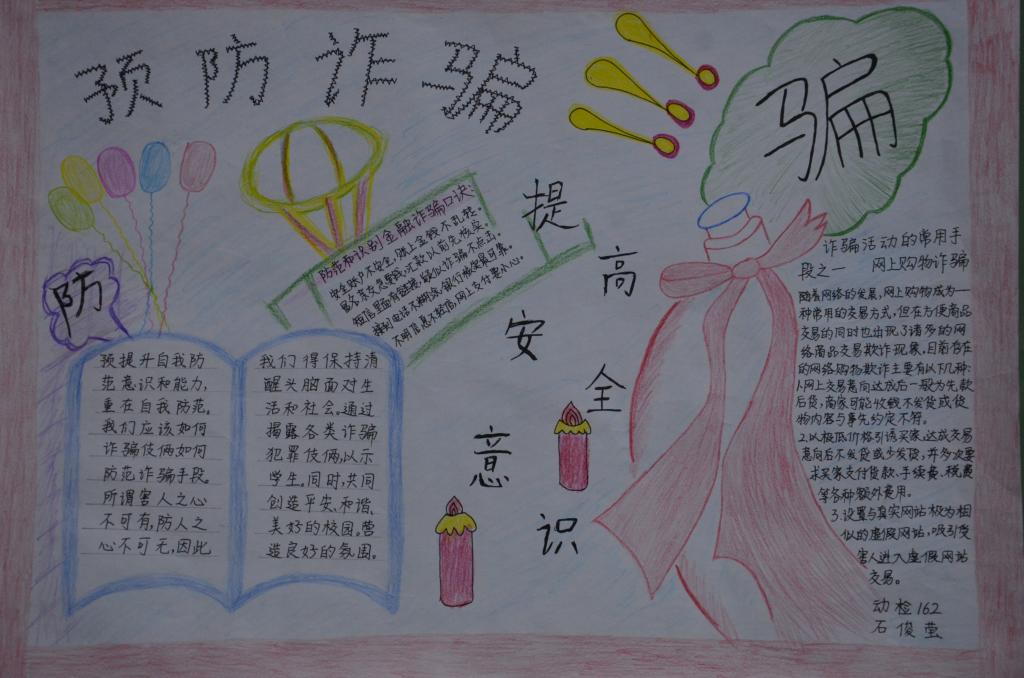 预防诈骗
骗
防
提高安全意识
防范和识别金融诈骗口诀:
学生账户不陌生,涉上金钱不乱整。
短信里面有链接,疑似诈骗不点击。
不明信息不轻信,网上支付要小心。
预提升自我防
范意识和能力,
重在自我防范。
我们应该如何
诈骗伎俩如何
防范诈骗手段。
所谓害人之心
不可有,防人之
心不可无,因此
我们得保持清
醒头脑面对生
活和社会。通过
揭露各类诈骗
犯罪伎俩,以示
学生。同时,共同
创造平安、和谐、
美好的校园。营
造良好的氛围。
诈骗活动的常用手
段之一 网上购物诈骗
随着网络的发展,网上购物成为一
种常用的交易方式,但在方便商品
交易的同时也出现了诸多的网
络商品交易欺诈现象。目前存在
的网络购物欺诈主要有以下几种:
1.网上交易意向达成后一般为先款
后货,商家可能收钱不发货或货
物内容与事先约定不符。
2.以极低价格引诱买家,达成交易
意向后不发货或少发货,并多次要
求买家支付货款、手续费、税费
等各种额外费用。
3.设置与真实网站极为相
似的虚假网站,吸引受
害人进入虚假网站
交易。
动检162
石俊莹